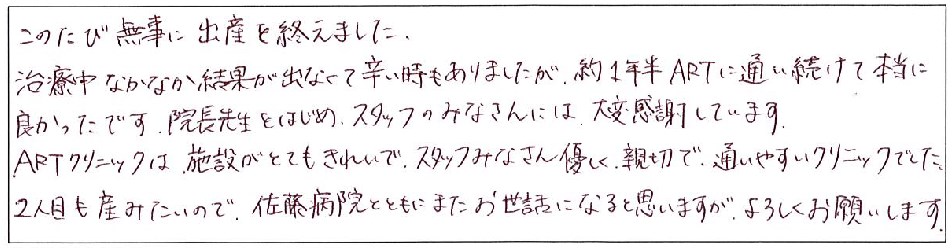 このたび無事に出産を終えました.
治療中なかなか結果が出なくて辛い時もありましたが.約1年半ARTに通い続けて本当に
良かったです.院長先生をはじめ.スタッフのみなさんには.大変感謝しています.
ARTクリニックは.施設がとてもきれいで.スタッフみなさん優しく.親切で.通いやすいクリニックでした.
2人目も産みたいので.佐藤病院とともにまたお世話になると思いますが.よろしくお願いします.